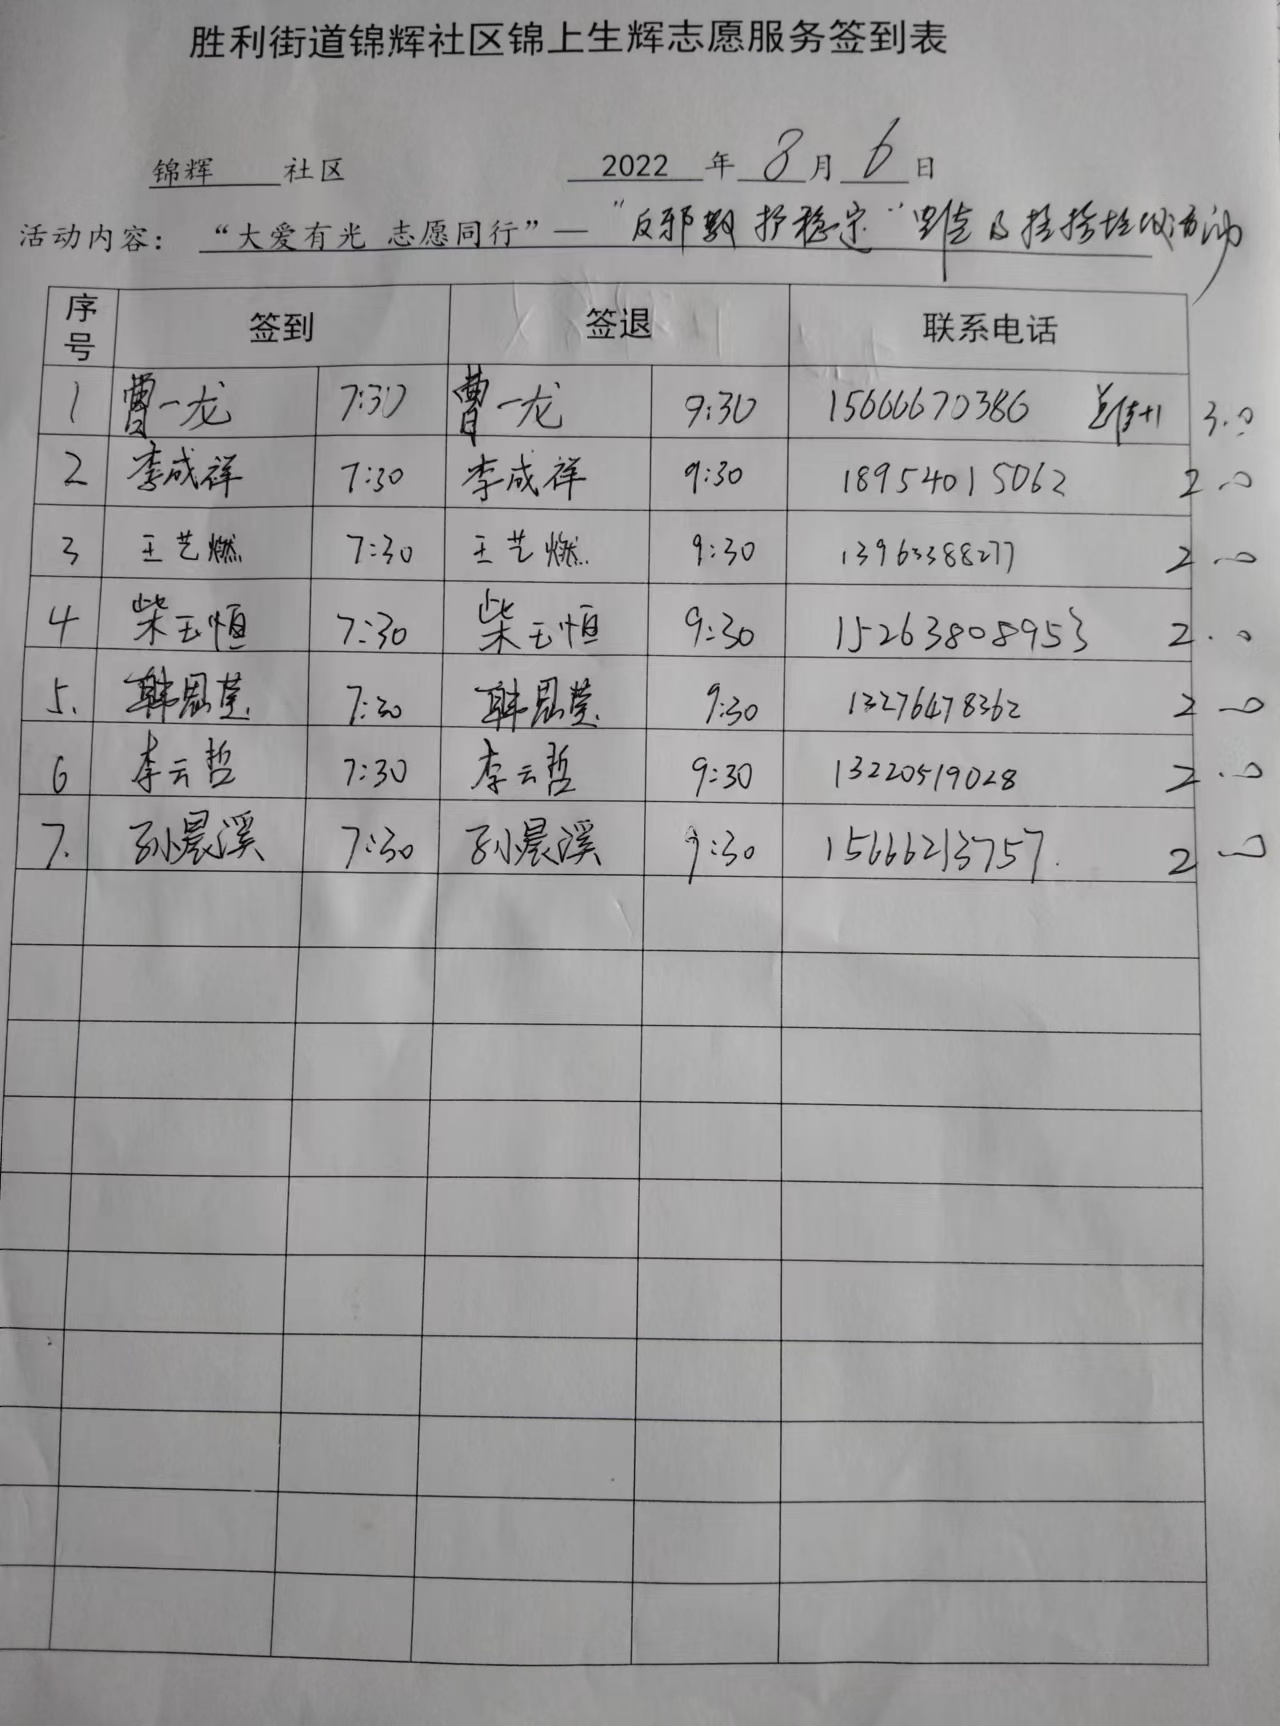 胜利街道锦辉社区锦上生辉志愿服务签到表
锦辉 社区 2022 年 8 月 6 日
活动内容： “大爱有光 志愿同行”— “反邪教 护稳定” 宣传 及 活动
序号 签到 签退 联系电话
1 曹一龙 7:30 曹一龙 9:30 15666670386 宣传+1 3.0
2 李成祥 7:30 李成祥 9:30 18954015062 2.0
3 王艺燃 7:30 王艺燃 9:30 13963388277 2.0
4 柴玉恒 7:30 柴玉恒 9:30 15263808953 2.0
5. 韩恩莹 7:30 韩恩莹 9:30 13276478362 2.0
6 李云哲 7:30 李云哲 9:30 13220519028 2.0
7. 孙晨溪 7:30 孙晨溪 9:30 15666213757. 2.0